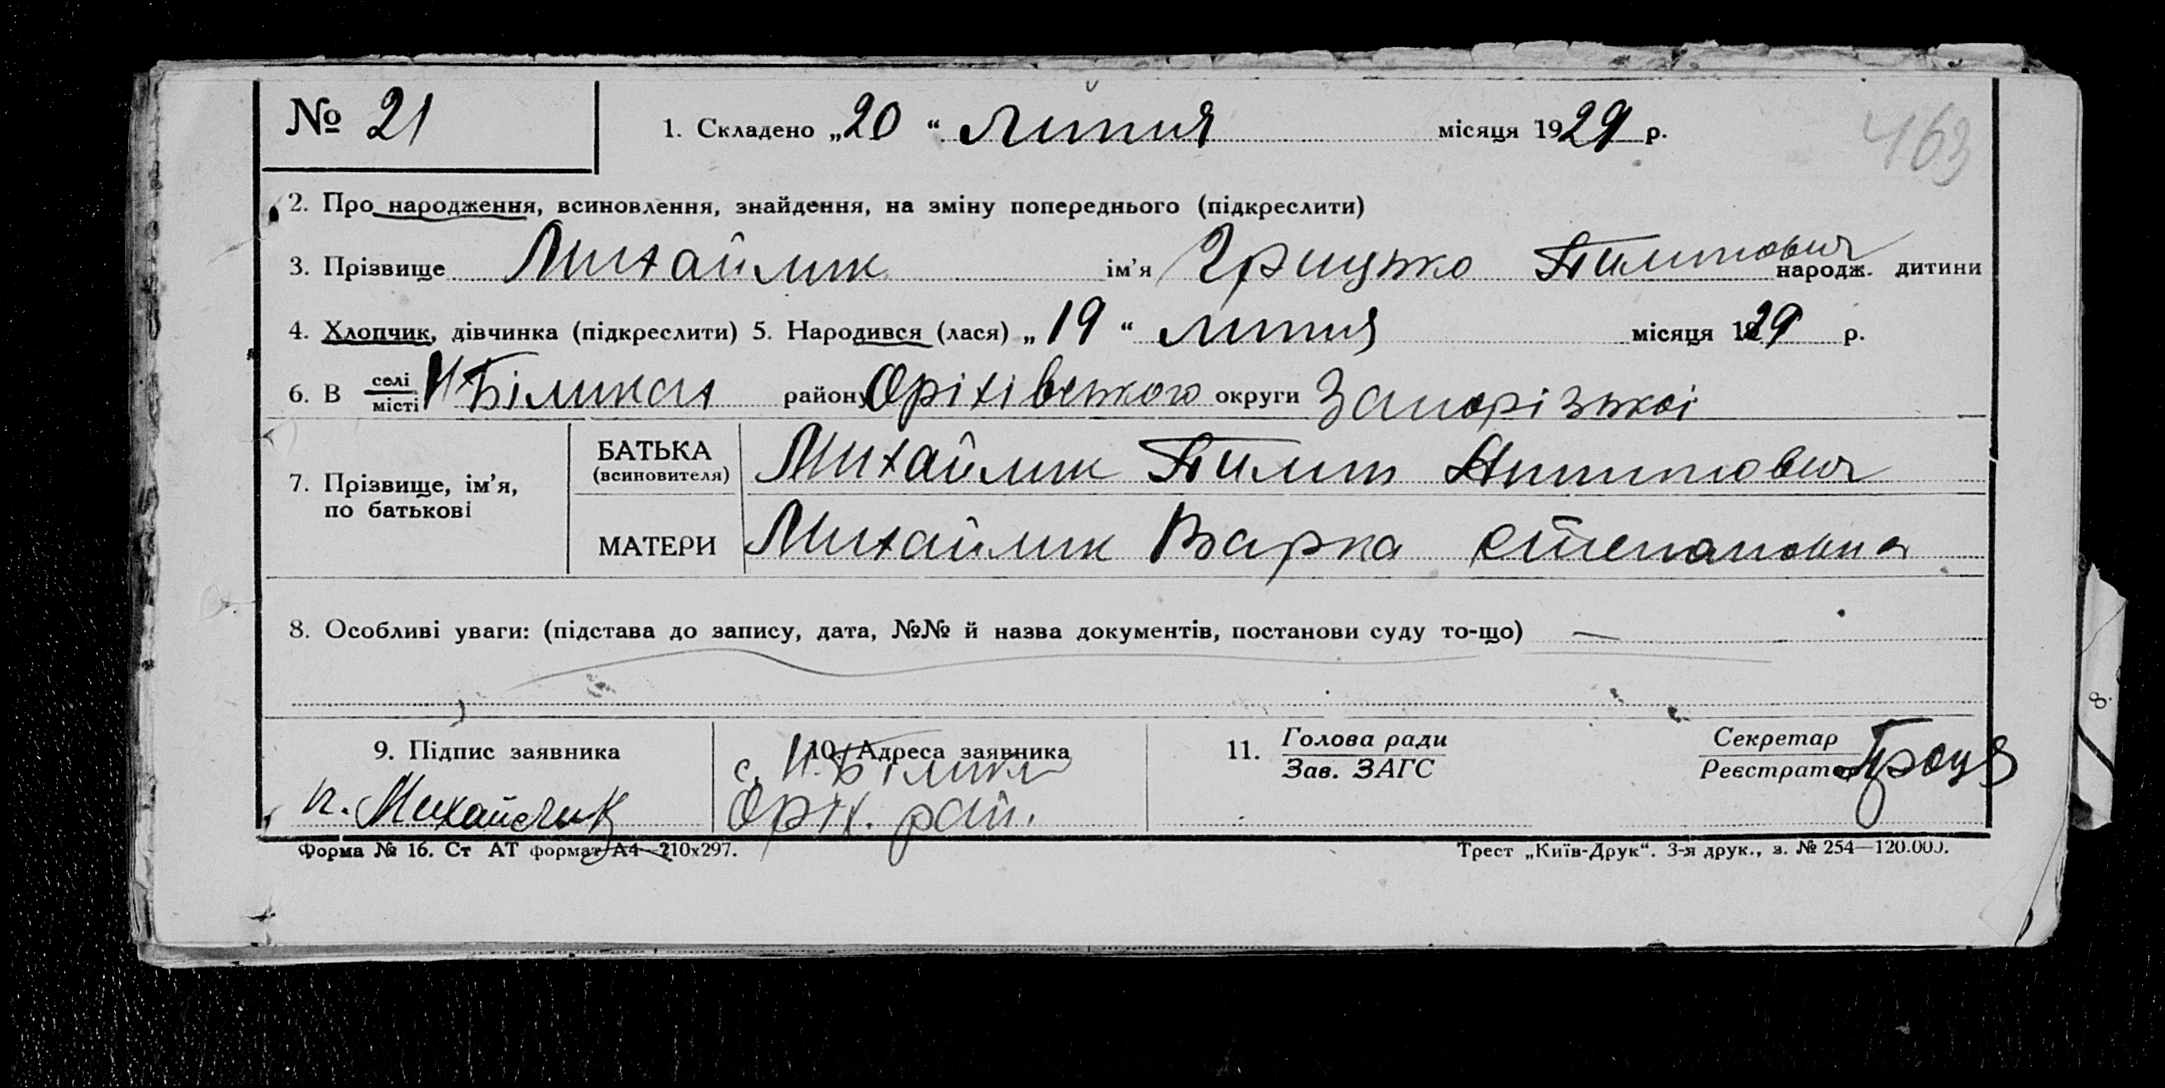 № 21
1. Складено „20“ липня місяця 1929 р.
463
2. Про народження, всиновлення, знайдення, на зміну попереднього (підкреслити)
3. Прізвище Михайлик ім’я Грицько Пилипович народж. дитини
4. Хлопчик, дівчинка (підкреслити) 5. Народився (лася) „19“ липня місяця 1929 р.
6. В селі місті Н Біликах району Оріхівського округи Запорізької
7. Прізвище, ім’я, по батькові
БАТЬКА (всиновителя) Михайлик Пилип Антипович
МАТЕРИ Михайлик Варка Степановна
8. Особливі уваги: (підстава до запису, дата, №№ й назва документів, постанови суду то-що) —
9. Підпис заявника
п. Михайлик
10. Адреса заявника
с. Н. Білики
Оріх. рай.
11. Голова ради
Зав. ЗАГС
Секретар
Реєстратор
Форма № 16. Ст АТ формат А4—210х297.
Трест „Київ-Друк“. 3-я друк., з. № 254—120.000.
8.